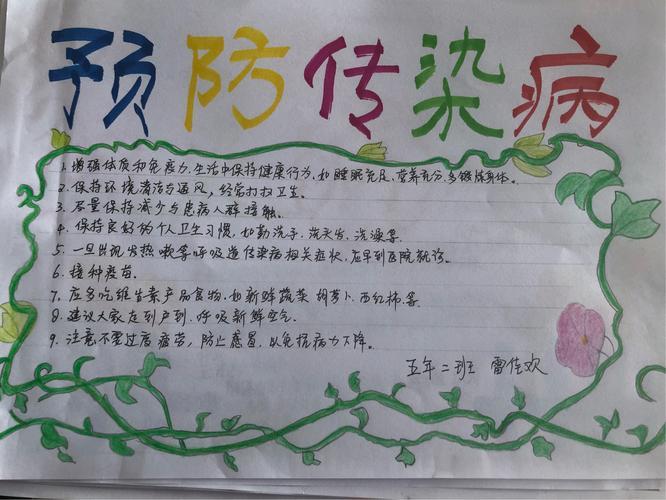 预防传染病
1. 增强体质和免疫力.生活中保持健康行为,如睡眠充足,营养充分,多锻炼身体。
2. 保持环境清洁与通风,经常打扫卫生。
3. 尽量保持减少与患病人群接触。
4. 保持良好的个人卫生习惯,如勤洗手、洗头发、洗澡等.
5. 一旦出现发热嗽等呼吸道传染病相关症状,应早到医院就诊。
6. 接种疫苗.
7. 应多吃维生素产品食物.如新鲜蔬菜 胡萝卜.西红柿等
8. 建议大家走到户到.呼吸新鲜空气.
9. 注意不要过度疲劳,防止感冒,以免抗病力下降。
五年二班 雷佳欢